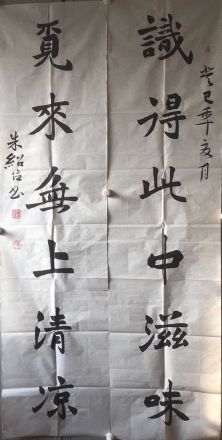 癸巳年亥月
識得此中滋味
覓來無上清凉
朱紹信书